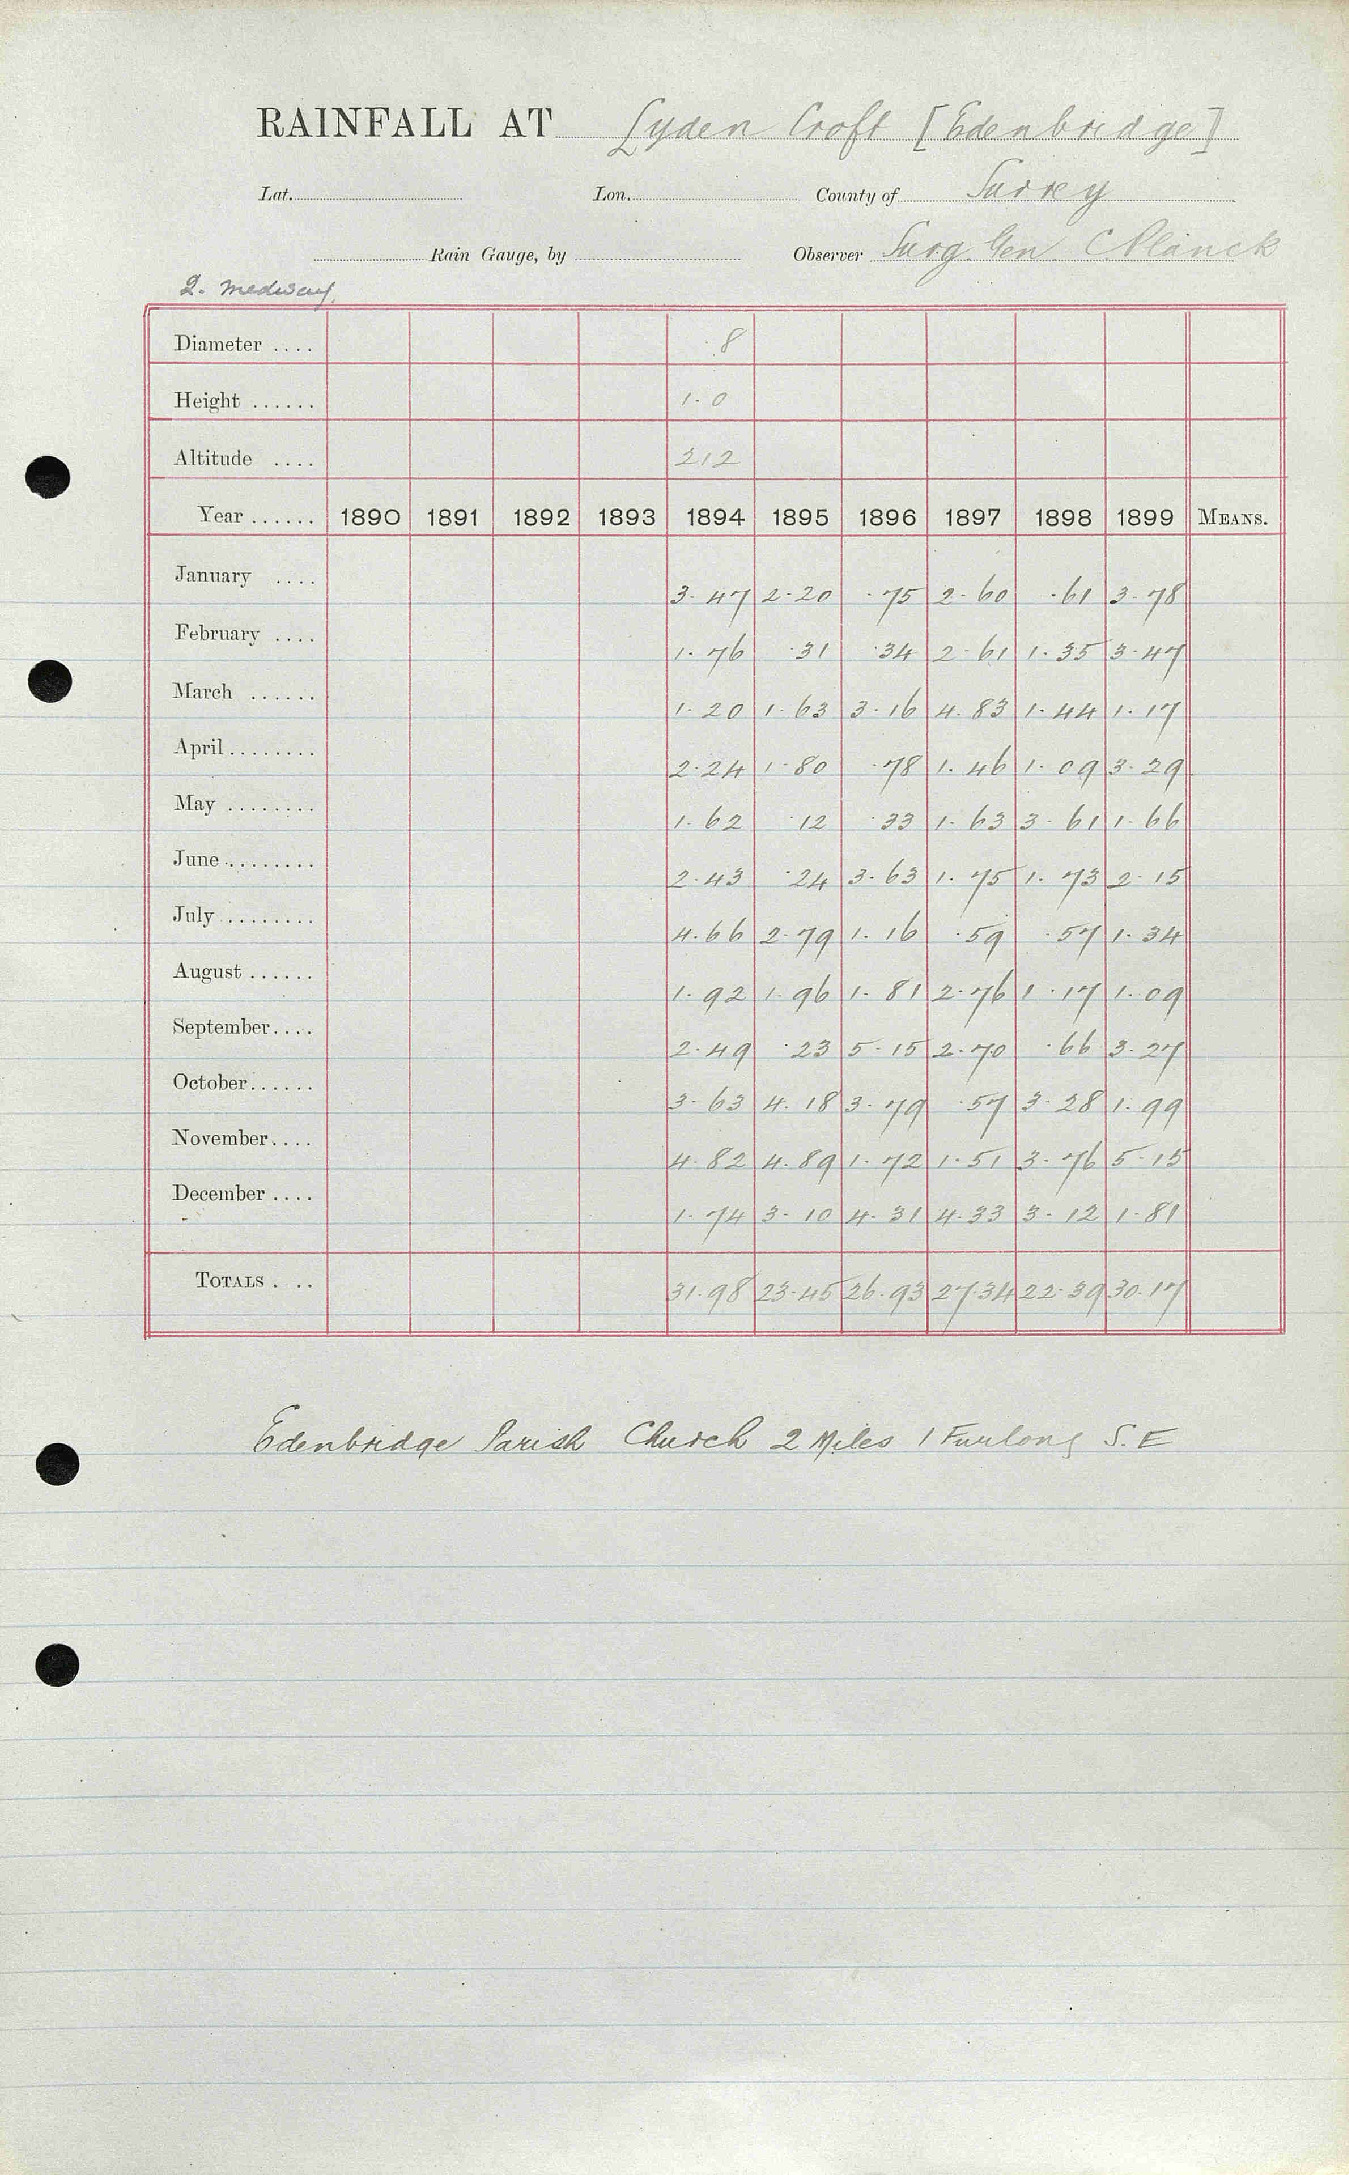 RAINFALL AT Lyden Croft [Edenbridge]
Lat. Lon. County of Surrey
Rain Gauge, by Observer Surg. Gen C Planck
2. Medway
Diameter .... 8
Height ...... 1.0
Altitude .... 212
Year ...... 1890 1891 1892 1893 1894 1895 1896 1897 1898 1899 MEANS.
January .... 3.47 2.20 .75 2.60 .61 3.78
February .... 1.76 .31 .34 2.61 1.35 3.47
March ...... 1.20 1.63 3.16 4.83 1.44 1.17
April ........ 2.24 1.80 .78 1.46 1.09 3.29
May ........ 1.62 .12 .33 1.63 3.61 1.66
June ........ 2.43 .24 3.63 1.75 1.73 2.15
July ........ 4.66 2.79 1.16 .59 .57 1.34
August ...... 1.92 1.96 1.81 2.76 1.17 1.09
September.... 2.49 .23 5.15 2.70 .66 3.27
October...... 3.63 4.18 3.79 .57 3.28 1.99
November.... 4.82 4.89 1.72 1.51 3.76 5.15
December .... 1.74 3.10 4.31 4.33 3.12 1.81
TOTALS . .. 31.98 23.45 26.93 27.34 22.39 30.17
Edenbridge Parish Church 2 Miles 1 Furlong S.E